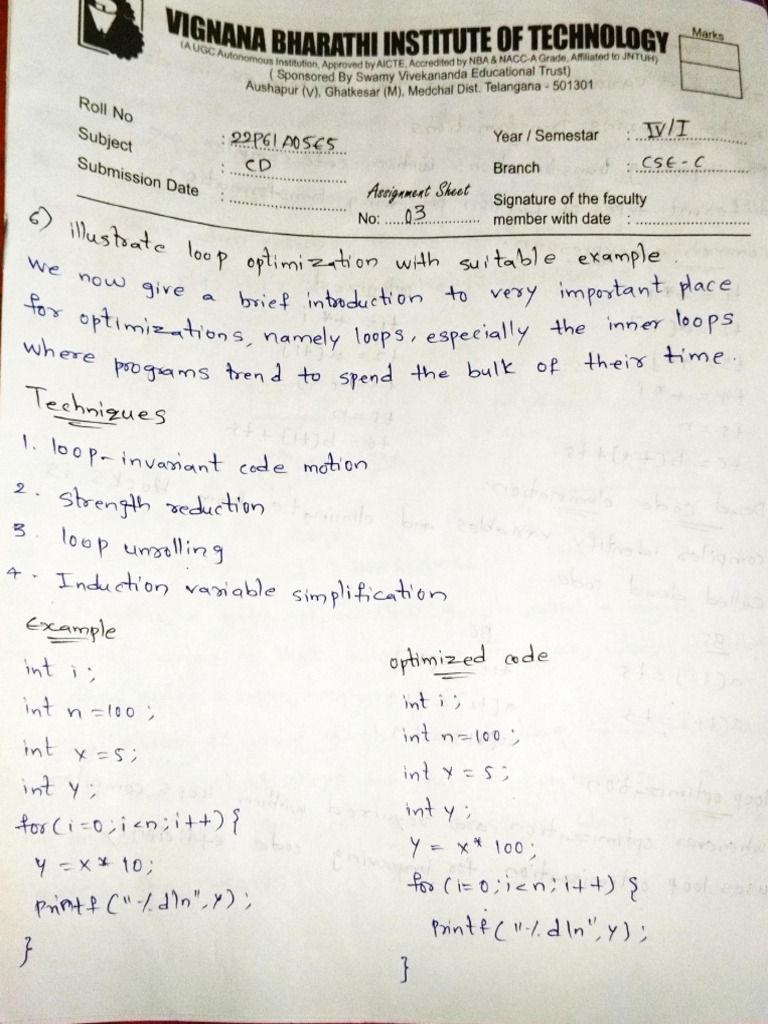 VIGNANA BHARATHI INSTITUTE OF TECHNOLOGY
(A UGC Autonomous Institution, Approved by AICTE, Accredited by NBA & NACC-A Grade, Affiliated to JNTUH)
( Sponsored By Swamy Vivekananda Educational Trust)
Aushapur (V), Ghatkesar (M), Medchal Dist. Telangana - 501301
Marks
Roll No : 22P61A05C5
Year / Semestar : IV/I
Subject : CD
Branch : CSE-C
Submission Date :
Assignment Sheet
No: 03
Signature of the faculty
member with date :
6) illustrate loop optimization with suitable example.
We now give a brief introduction to very important place
for optimizations, namely loops, especially the inner loops
where programs trend to spend the bulk of their time.
Techniques
1. loop-invariant code motion
2. Strength reduction
3. loop unrolling
4. Induction variable simplification
Example
int i;
int n=100;
int x=5;
int y;
for(i=0;i<n;i++){
y=x*10;
printf("%d\n",y);
}
optimized code
int i;
int n=100;
int x=5;
int y;
y = x*100;
for (i=0;i<n;i++) {
printf("%d\n",y);
}